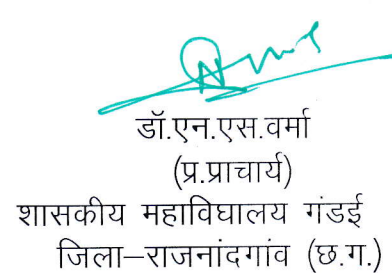 डॉ.एन.एस.वर्मा
(प्र.प्राचार्य)
शासकीय महाविघालय गंडई
जिला–राजनांदगांव (छ.ग.)